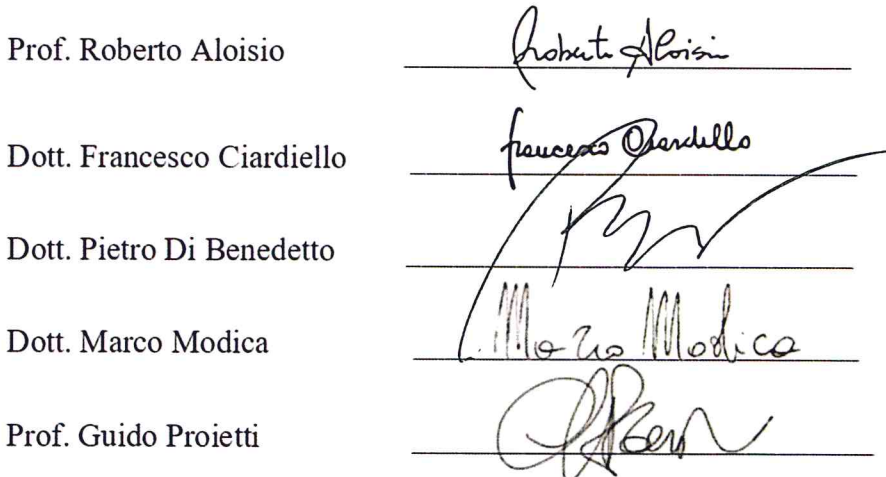 Prof. Roberto Aloisio Roberto Aloisio
Dott. Francesco Ciardiello francesco Ciardiello
Dott. Pietro Di Benedetto
Dott. Marco Modica Marco Modica
Prof. Guido Proietti